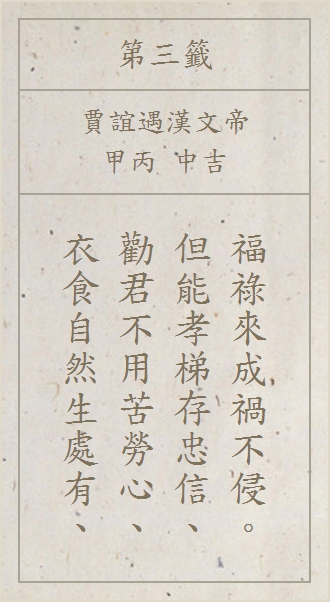 第三籤
賈誼遇漢文帝
甲丙 中吉
衣食自然生處有、
勸君不用苦勞心、
但能孝梯存忠信、
福祿來成禍不侵。